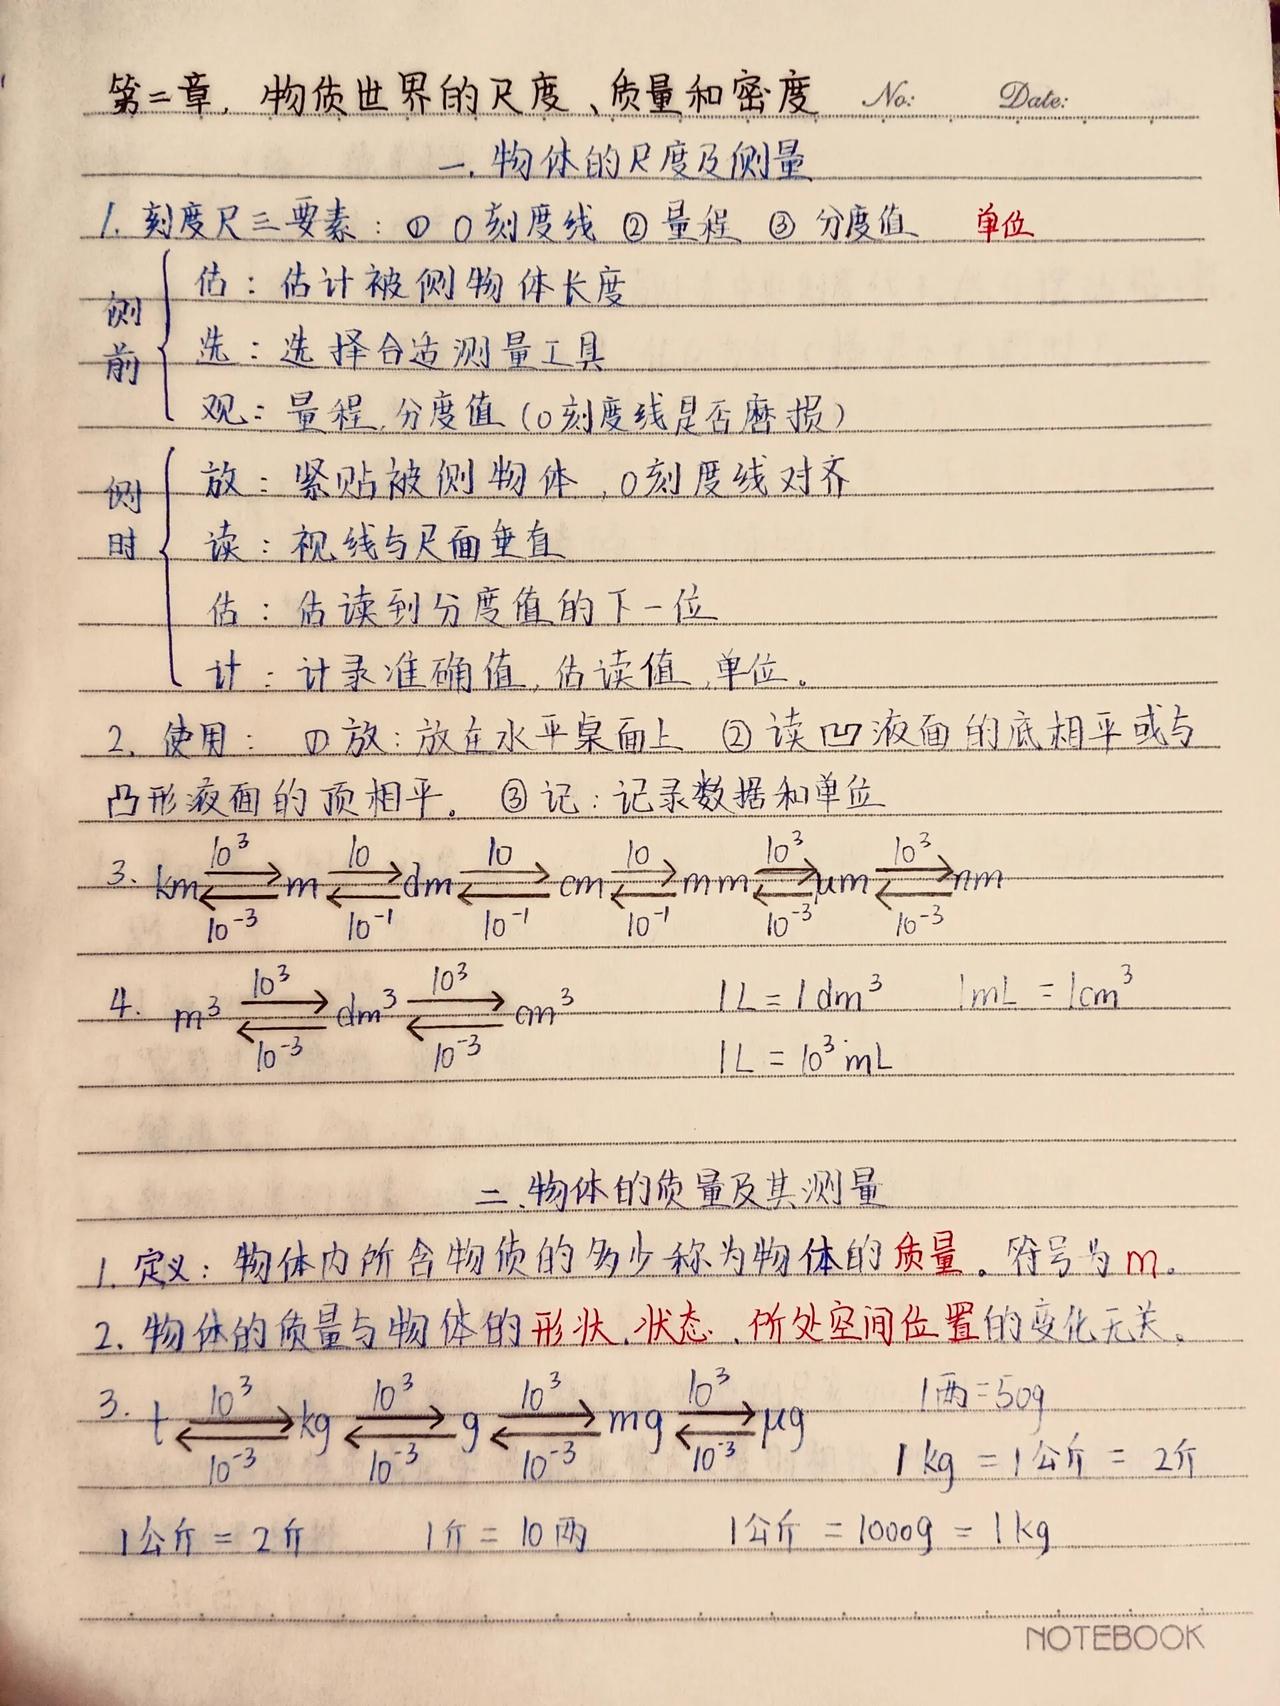 第二章，物质世界的尺度、质量和密度 No: Date:
一.物体的尺度及侧量
1. 刻度尺三要素：① 0刻度线 ② 量程 ③ 分度值 单位
侧前
估：估计被侧物体长度
选：选择合适测量工具
观：量程,分度值(0刻度线是否磨损)
侧时
放：紧贴被侧物体，0刻度线对齐
读：视线与尺面垂直
估：估读到分度值的下一位
计：计录准确值,估读值,单位。
2. 使用： ① 放：放在水平桌面上 ② 读凹液面的底相平或与
凸形液面的顶相平。 ③ 记：记录数据和单位
10³ 10 10 10 10³ 10³
3. km ⇄ m ⇄ dm ⇄ cm ⇄ mm ⇄ μm ⇄ nm
10⁻³ 10⁻¹ 10⁻¹ 10⁻¹ 10⁻³ 10⁻³
10³ 10³
4. m³ ⇄ dm³ ⇄ cm³ 1L = 1dm³ 1mL = 1cm³
10⁻³ 10⁻³ 1L = 10³mL
二、物体的质量及其测量
1. 定义：物体内所含物质的多少称为物体的质量。符号为m。
2. 物体的质量与物体的形状、状态、所处空间位置的变化无关。
10³ 10³ 10³ 10³ 1两=50g
3. t ⇄ kg ⇄ g ⇄ mg ⇄ μg
10⁻³ 10⁻³ 10⁻³ 10⁻³ 1kg = 1公斤 = 2斤
1公斤 = 2斤 1斤 = 10两 1公斤 = 1000g = 1kg
NOTEBOOK